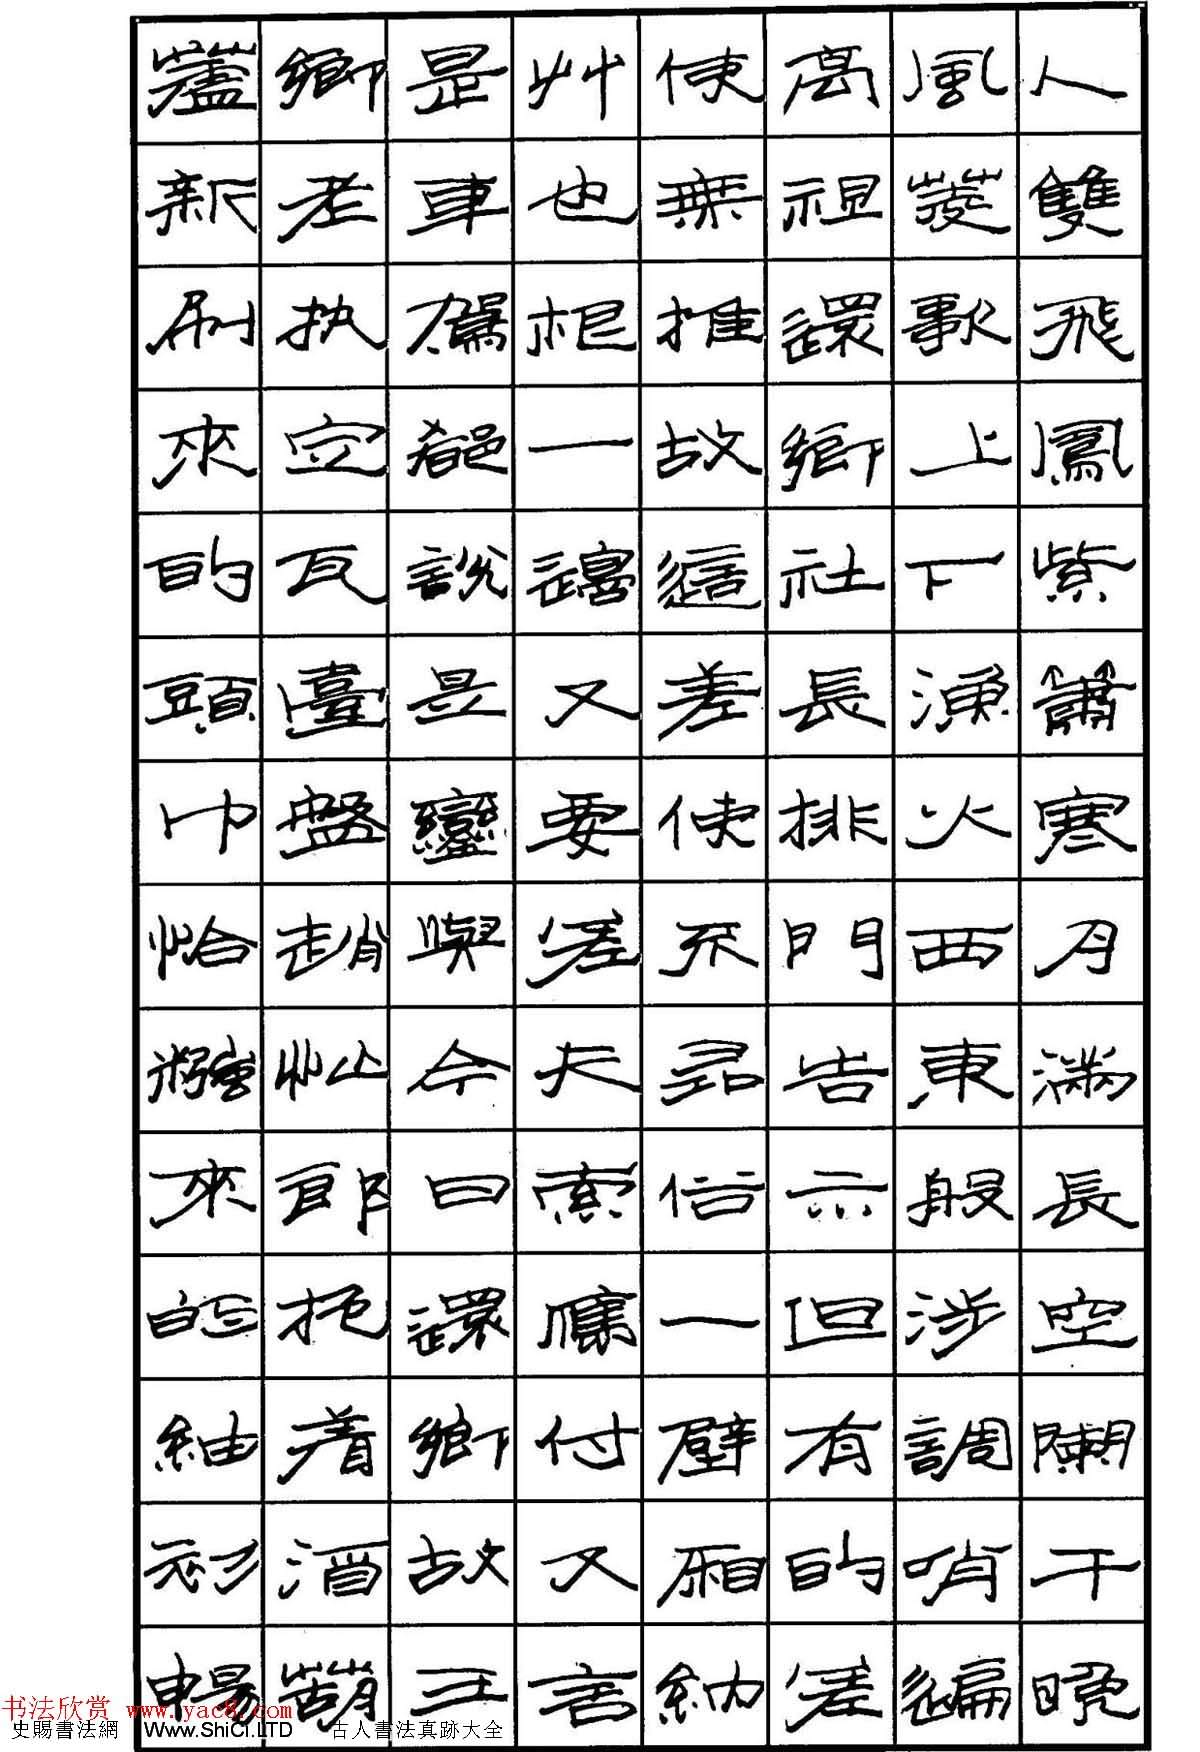 人雙飛鳳紫簫寒月滿長空闌干晚
風菱歌上下漁火西東般涉調哨遍
高祖還鄉社長排門告示但有的差
使無推故這差使不尋俗一壁廂納
艸也根一邊又要差夫索應付又言
是車駕都說是鑾輿今日還鄉故王
鄉老執定瓦臺盤趙忙郎抱着酒葫
蘆新刷來的頭巾恰糨來的紬衫暢
书法欣赏 www.yac8.com
史賜書法網 Www.ShiCi.LTD 古人書法真跡大全